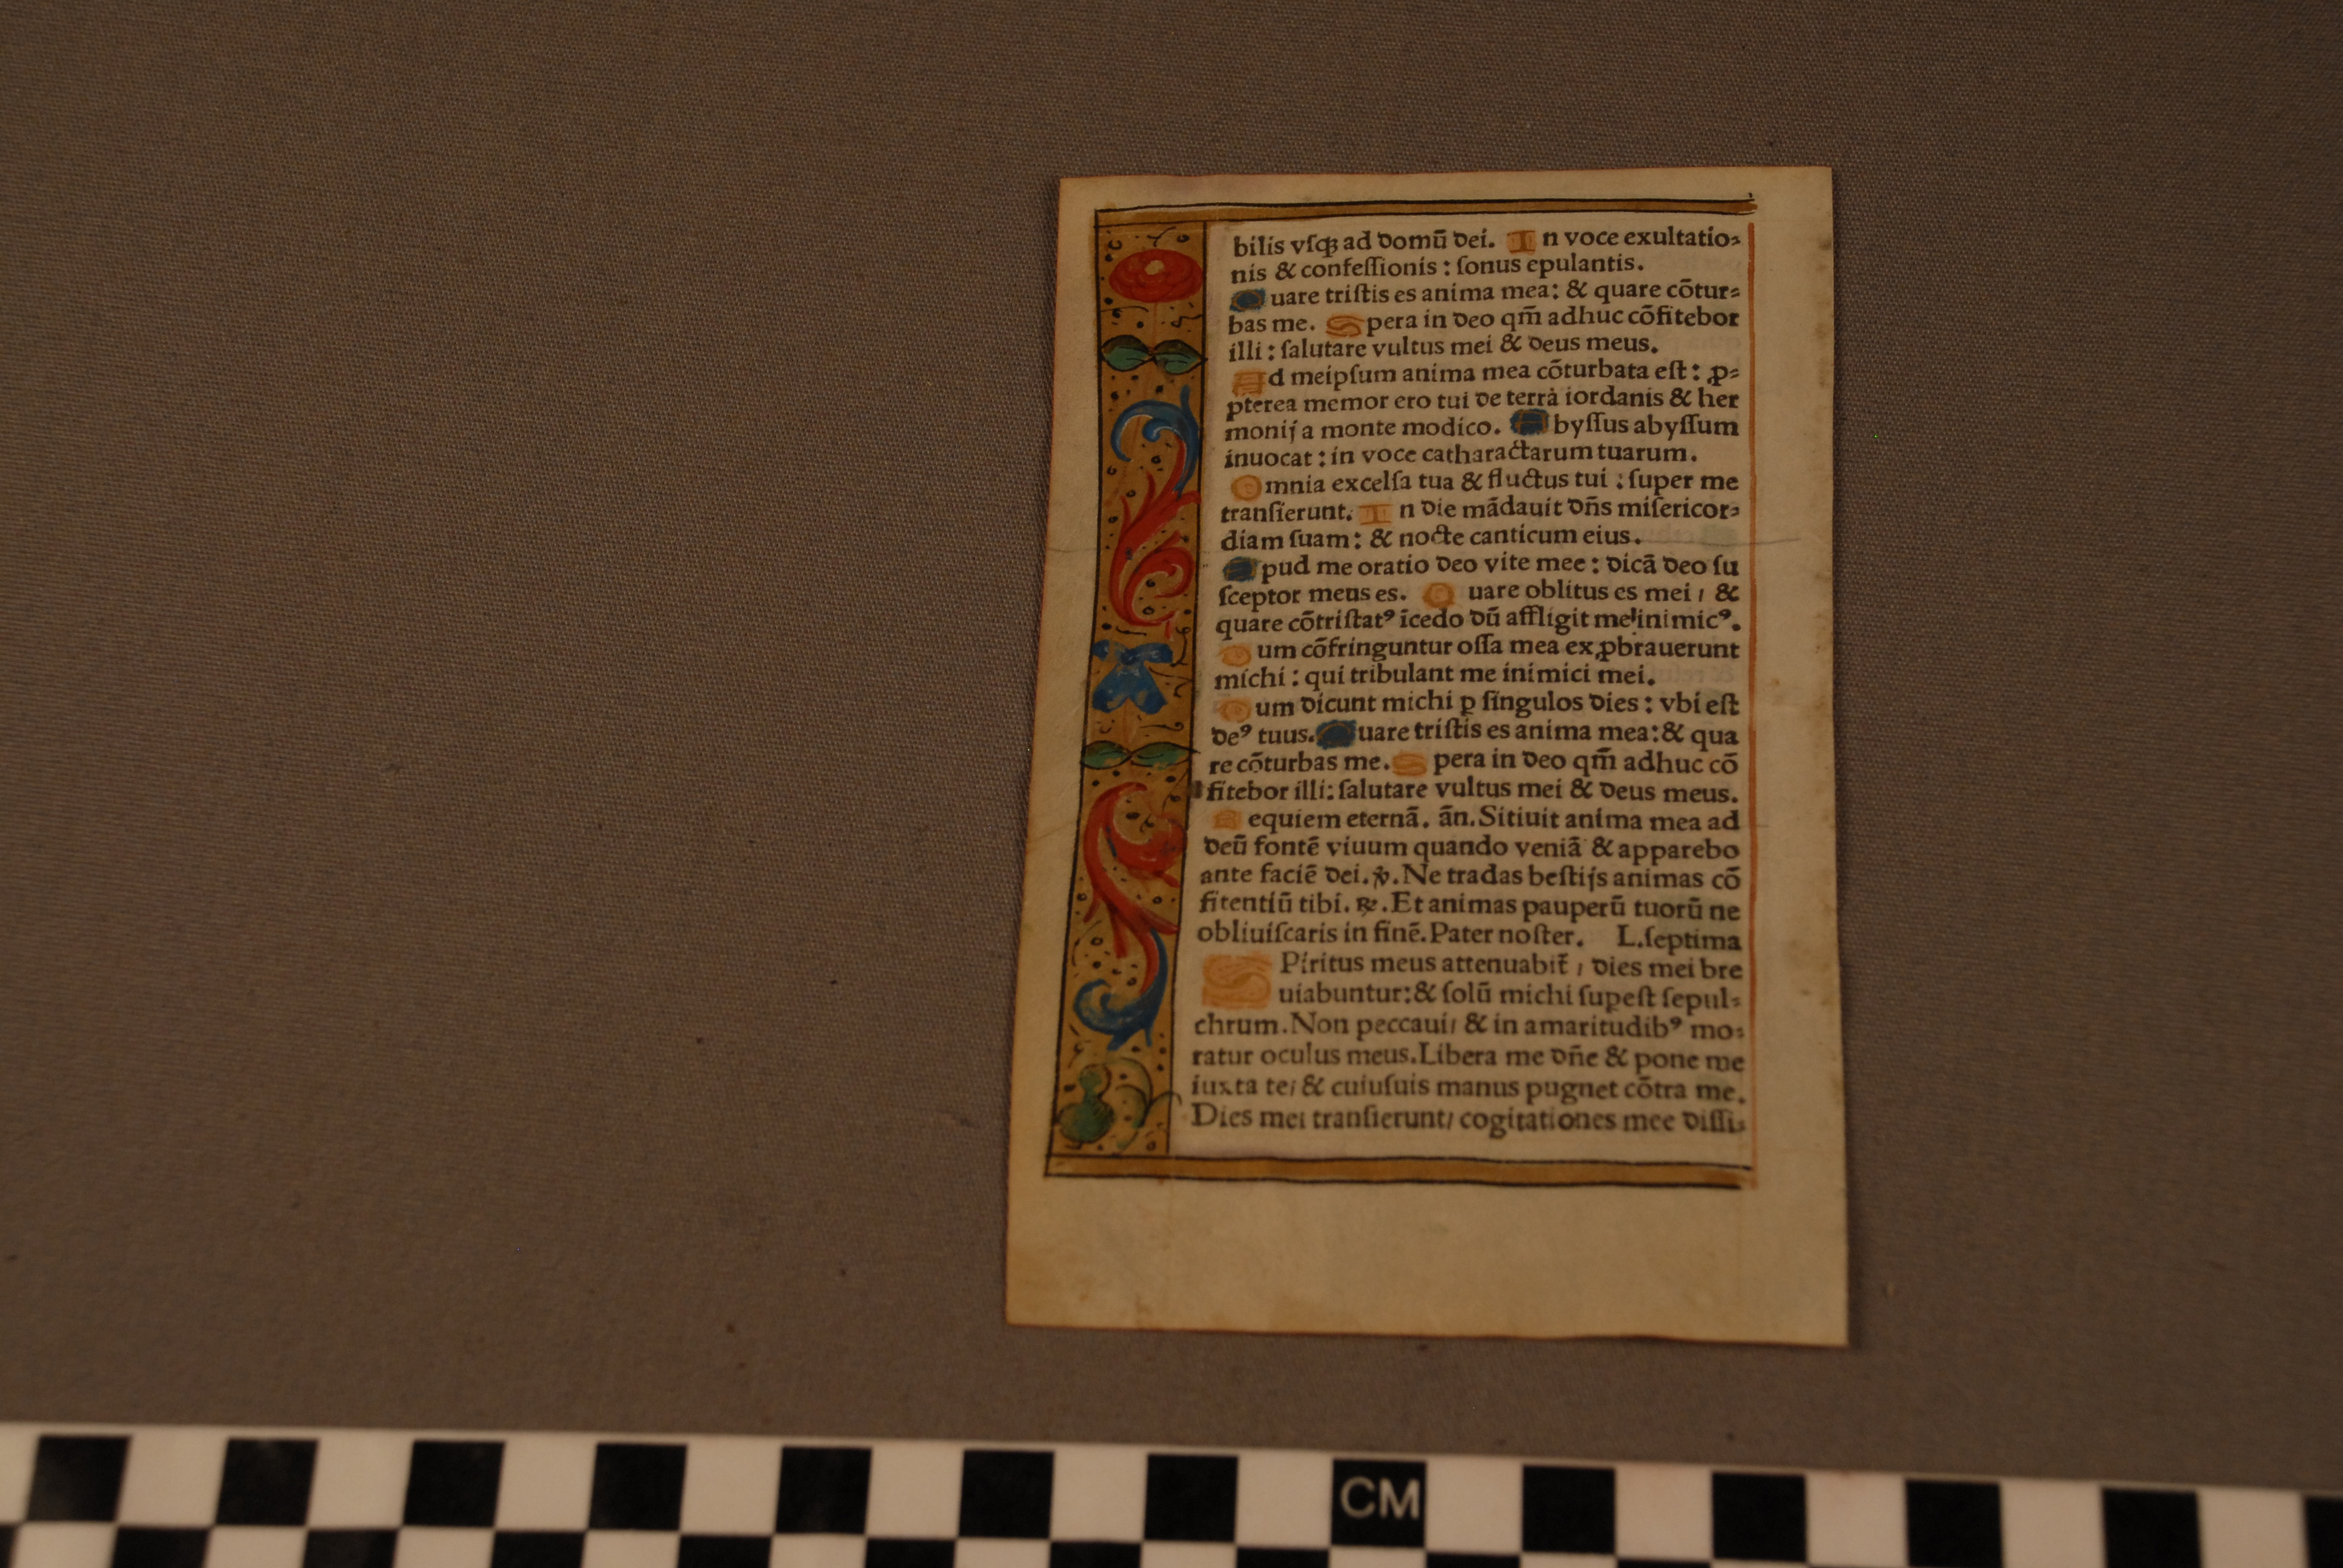 bilis vſqꝫ ad domū dei. In voce exultatio⸗
nis & confeſſionis : ſonus epulantis.
Quare triſtis es anima mea: & quare cōtur⸗
bas me. Spera in deo qm̄ adhuc cōfitebor
illi : ſalutare vultus mei & deus meus.
Ad meipſum anima mea cōturbata eſt : ꝓ⸗
pterea memor ero tui de terra iordanis & her
monij a monte modico. Abyſſus abyſſum
inuocat : in voce catharactarum tuarum.
Omnia excelſa tua & fluctus tui : ſuper me
tranſierunt. In die mādauit dn̄s miſericor⸗
diam ſuam : & nocte canticum eius.
Apud me oratio deo vite mee : dicā deo ſu
ſceptor meus es. Quare oblitus es mei / &
quare cōtriſtatꝰ īcedo dū affligit me inimicꝰ.
Dum cōfringuntur oſſa mea exꝓbrauerunt
michi : qui tribulant me inimici mei.
Dum dicunt michi ꝑ ſingulos dies : vbi eſt
deꝰ tuus. Quare triſtis es anima mea: & qua
re cōturbas me. Spera in deo qm̄ adhuc cō
fitebor illi: ſalutare vultus mei & deus meus.
Requiem eternā. ān. Sitiuit anima mea ad
deū fontē viuum quando veniā & apparebo
ante faciē dei. ꝟ. Ne tradas beſtijs animas cō
fitentiū tibi. ℞. Et animas pauperū tuorū ne
obliuiſcaris in finē. Pater noſter. L. ſeptima
SPiritus meus attenuabit̄ / dies mei bre
uiabuntur: & ſolū michi ſuꝑeſt ſepul⸗
chrum. Non peccaui / & in amaritudibꝰ mo⸗
ratur oculus meus. Libera me dn̄e & pone me
iuxta te / & cuiuſuis manus pugnet cōtra me.
Dies mei tranſierunt / cogitationes mee diſſi⸗
CM